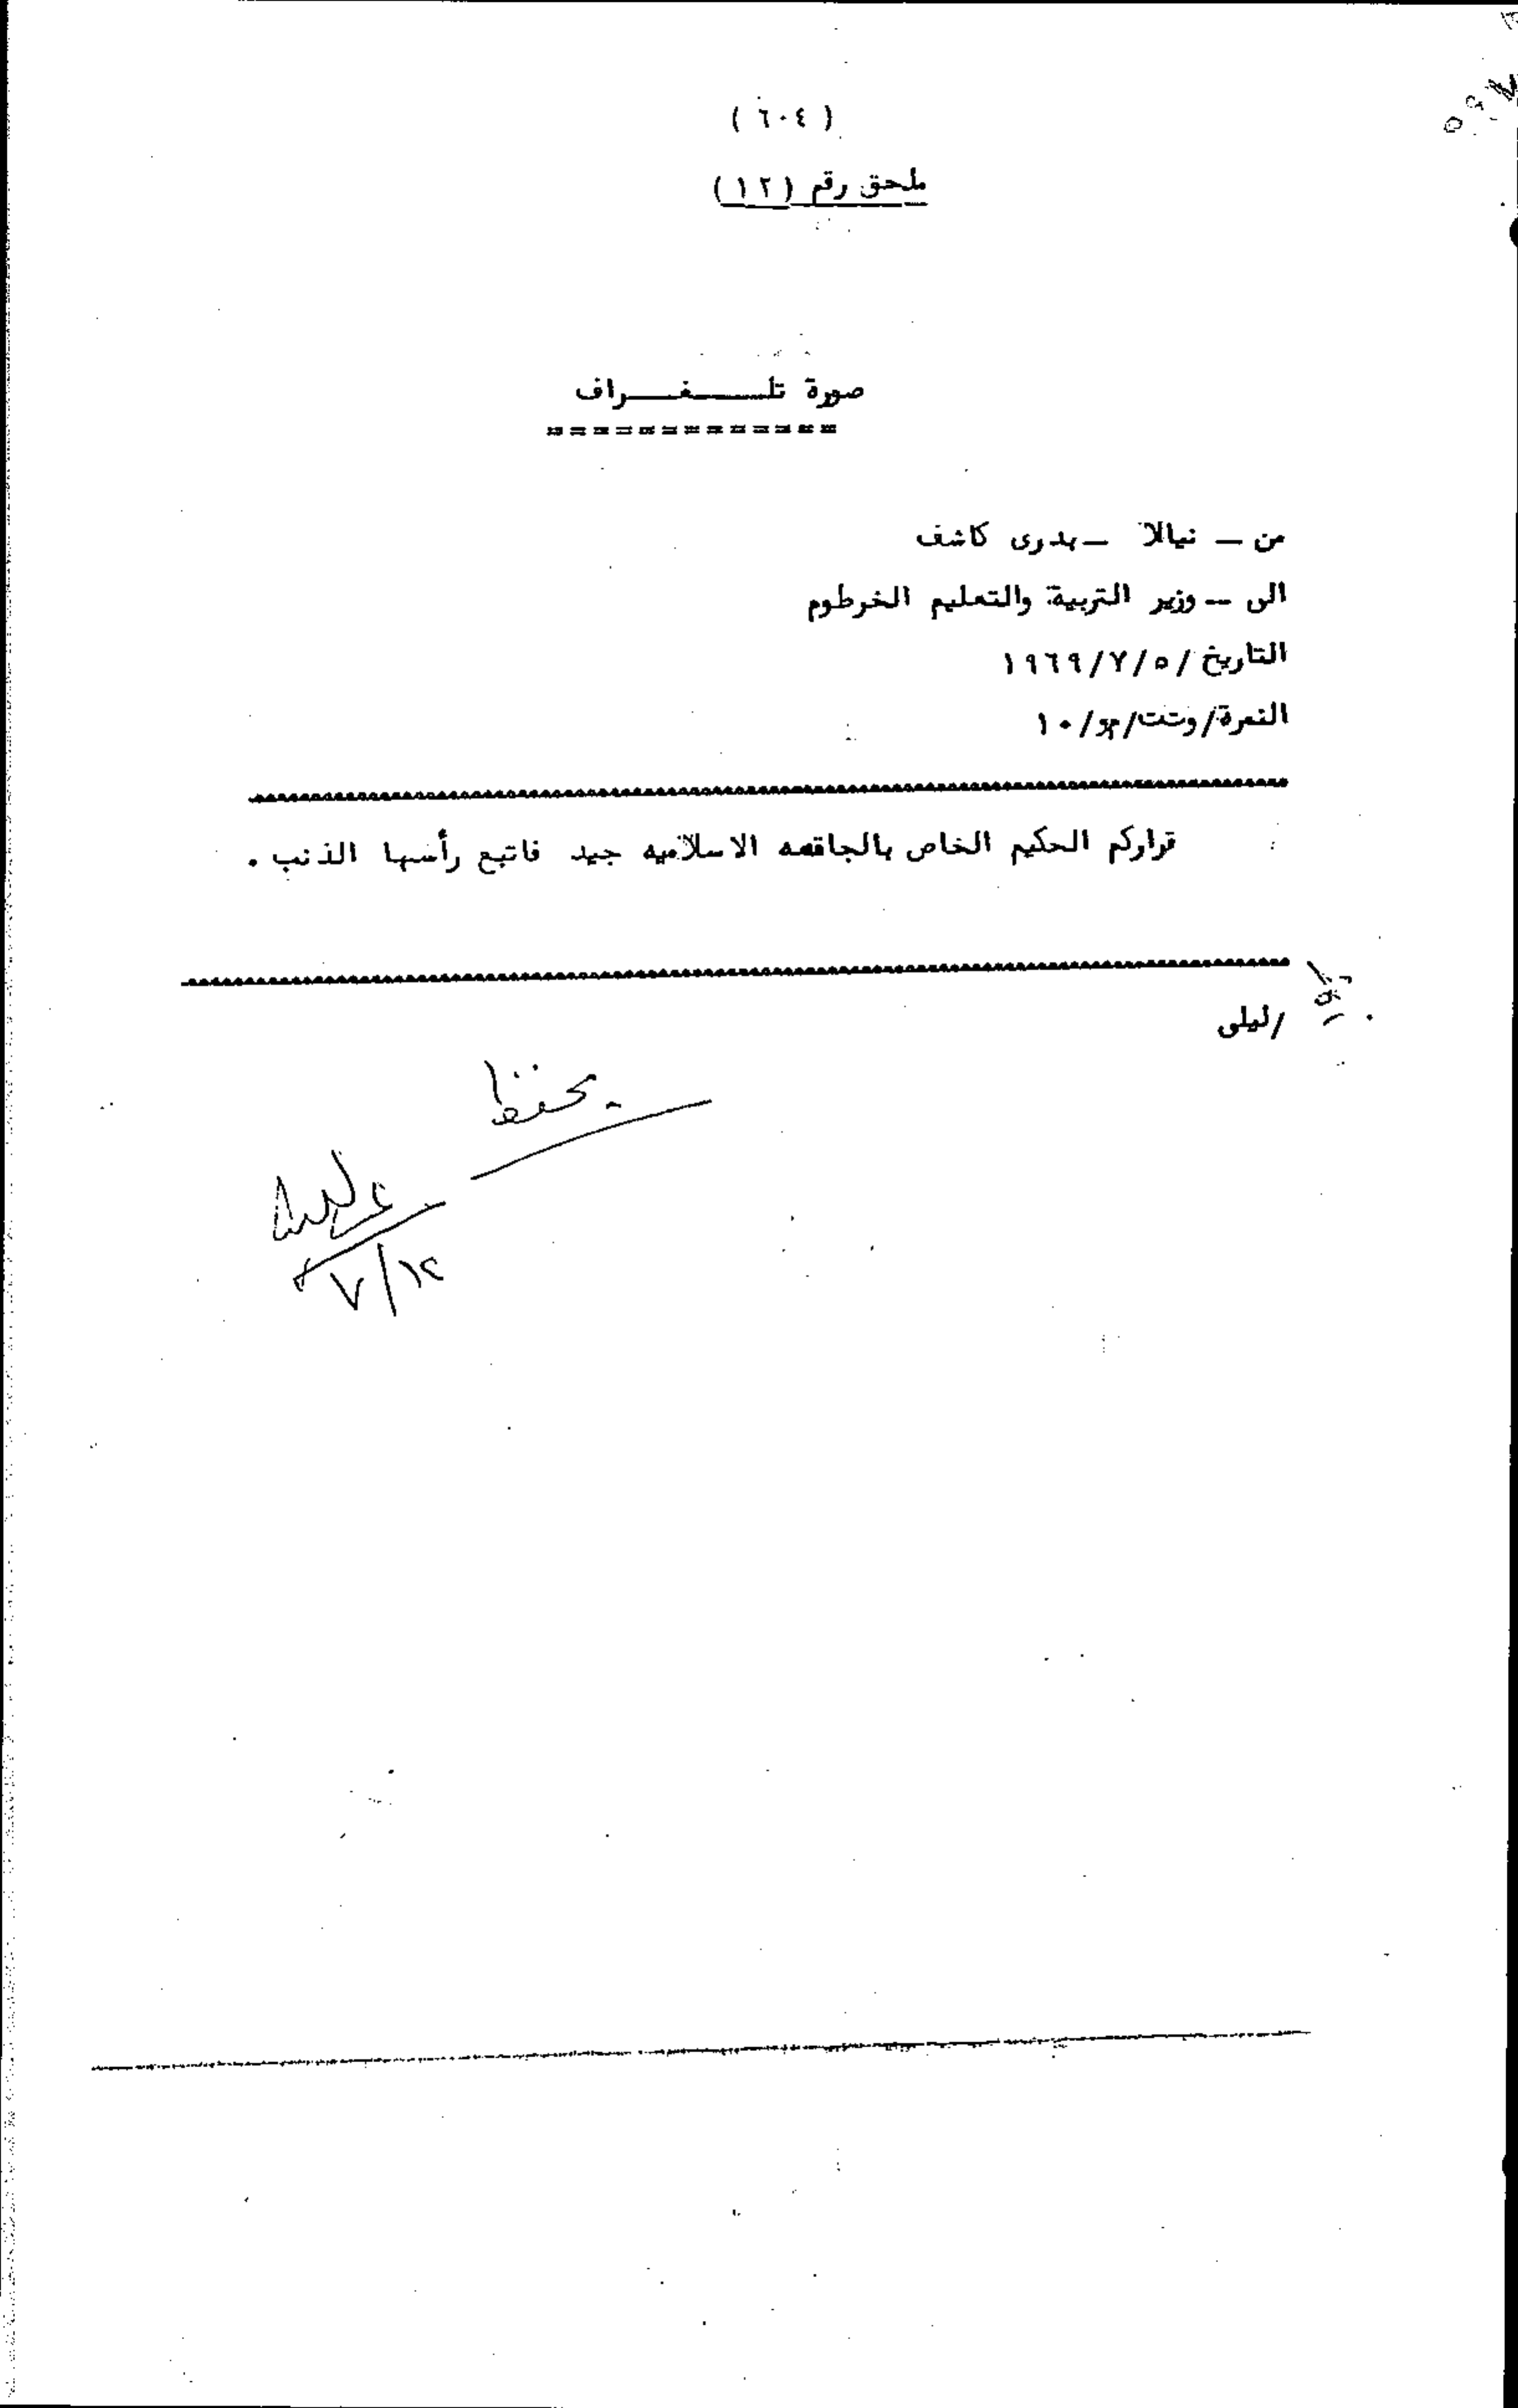 ( ٦٠٤ )
ملحق رقم (١٢)
صورة تلـــغـــراف
= = = = = = = = = = = = =
من ــ نيالا ــ بدرى كاشف
الى ــ وزير التربية والتعليم الخرطوم
التاريخ /٥/٧/١٩٦٩
النمرة/وتت/ /١٠
قراركم الحكيم الخاص بالجاقعه الاسلاميه جيد فاتبع رأسها الذنب .
/ليلى
يحفظ
٧/١٢